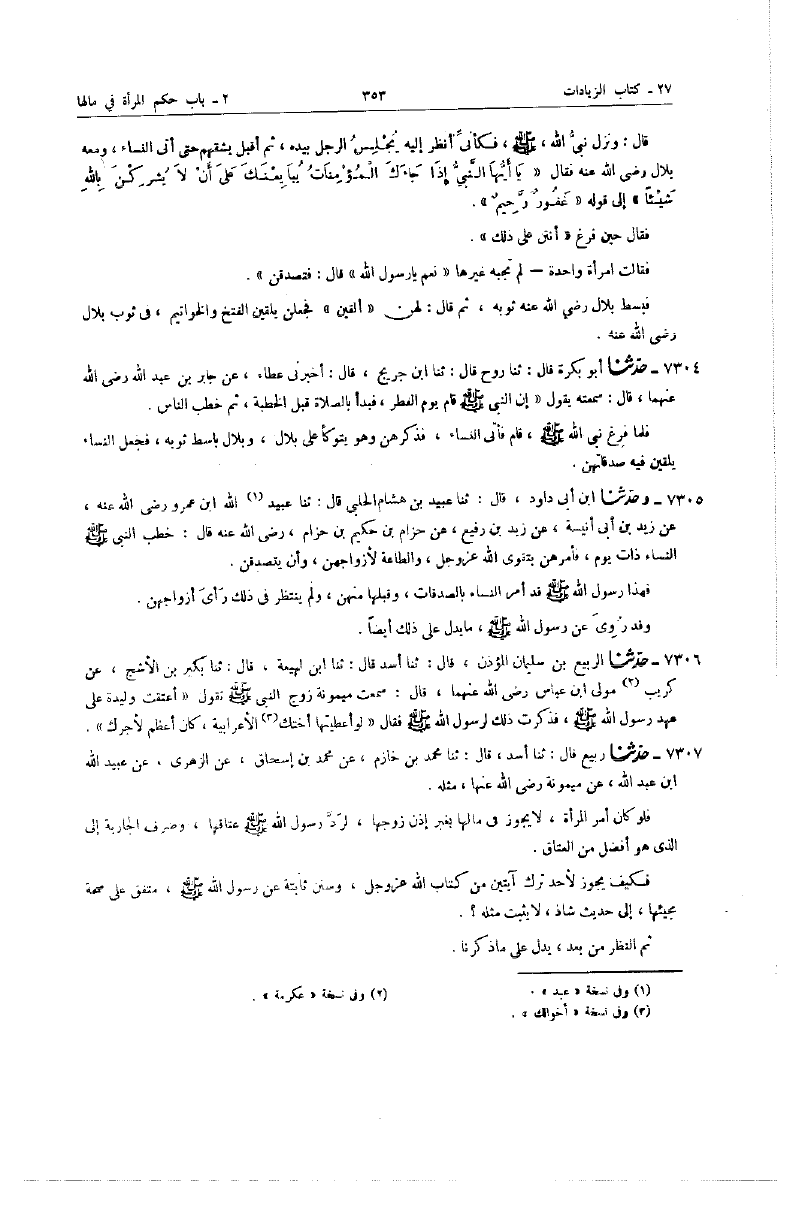 ٢٧ ـ كتاب الزيادات ٣٥٣ ٢ ـ باب حكم المرأة في مالها
قال : ونزل نبيُّ الله ، ﷺ ، فـكأنى أنظر إليه يُجلِسُ الرجل بيده ، ثم أقبل يشقهم حتى أتى النساء ، ومعه
بلال رضى الله عنه فقال « يَا أَيُّهَا النَّبِيُّ إِذَا جَاءَكَ الْمُؤْمِنَاتُ يُبَايِعْنَكَ عَلَى أَنْ لَا يُشْرِكْنَ بِاللهِ
شَيْئاً » إلى قوله « غَفُورٌ رَّحِيمٌ » .
فقال حين فرغ « أنتن على ذلك » .
فقالت امرأة واحدة — لم تجبه غيرها « نعم يارسول الله » قال : فتصدقن » .
فبسط بلال رضي الله عنه ثوبه ، ثم قال : لهن « ألقين » فجعلن يلقين الفتخ والخواتيم ، فى ثوب بلال
رضى الله عنه .
٧٣٠٤ ـ حدثنا أبو بكرة قال : ثنا روح قال : ثنا ابن جريج ، قال : أخبرنى عطاء ، عن جابر بن عبد الله رضى الله
عنهما ، قال : سمعته يقول « إن النبى ﷺ قام يوم الفطر ، فبدأ بالصلاة قبل الخطبة ، ثم خطب الناس .
فلما فرغ نبي الله ﷺ ، قام فأتى النساء ، فذكرهن وهو يتوكأ على بلال ، وبلال باسط ثوبه ، فجعل النساء
يلقين فيه صدقاتهن .
٧٣٠٥ ـ وحدثنا ابن أبى داود ، قال : ثنا عبيد بن هشام الحلبي قال : ثنا عبيد (١) الله ابن عمرو رضى الله عنه ،
عن زيد بن أبى أنيسة ، عن زيد بن رفيع ، عن حزام بن حكيم بن حزام ، رضى الله عنه قال : خطب النبى ﷺ
النساء ذات يوم ، فأمرهن بتقوى الله عزوجل ، والطاعة لأزواجهن ، وأن يتصدقن .
فهذا رسول الله ﷺ قد أمر النساء بالصدقات ، وقبلها منهن ، ولم ينتظر فى ذلك رَأىَ أزواجهن .
وقد رُوِىَ عن رسول الله ﷺ ، مايدل على ذلك أيضاً .
٧٣٠٦ ـ حدثنا الربيع بن سليمان المؤذن ، قال : ثنا أسد قال : ثنا ابن لهيعة ، قال : ثنا بكير بن الأشج ، عن
كريب (٢) مولى ابن عباس رضى الله عنهما ، قال : سمعت ميمونة زوج النبى ﷺ تقول « أعتقت وليدة على
عهد رسول الله ﷺ ، فذكرت ذلك لرسول الله ﷺ فقال « لو أعطيتها أختك(٣) الأعرابية ، كان أعظم لأجرك » .
٧٣٠٧ ـ حدثنا ربيع قال : ثنا أسد ، قال : ثنا محمد بن خازم ، عن محمد بن إسحاق ، عن الزهرى ، عن عبيد الله
ابن عبد الله ، عن ميمونة رضى الله عنها ، مثله .
فلو كان أمر المرأة ، لايجوز فى مالها بغير إذن زوجها ، لردَّ رسول الله ﷺ عتاقها ، وصرف الجارية إلى
الذى هو أفضل من العتاق .
فـكيف يجوز لأحد ترك آيتين من كتاب الله عزوجل ، وسنن ثابتة عن رسول الله ﷺ ، متفق على صحة
مجيئها ، إلى حديث شاذ ، لايثبت مثله ؟ .
ثم النظر من بعد ، يدل على ماذكرنا .
(١) وفى نسخة « عبد » . (٢) وفى نسخة « عكرمة » .
(٣) وفى نسخة « أخوالك » .